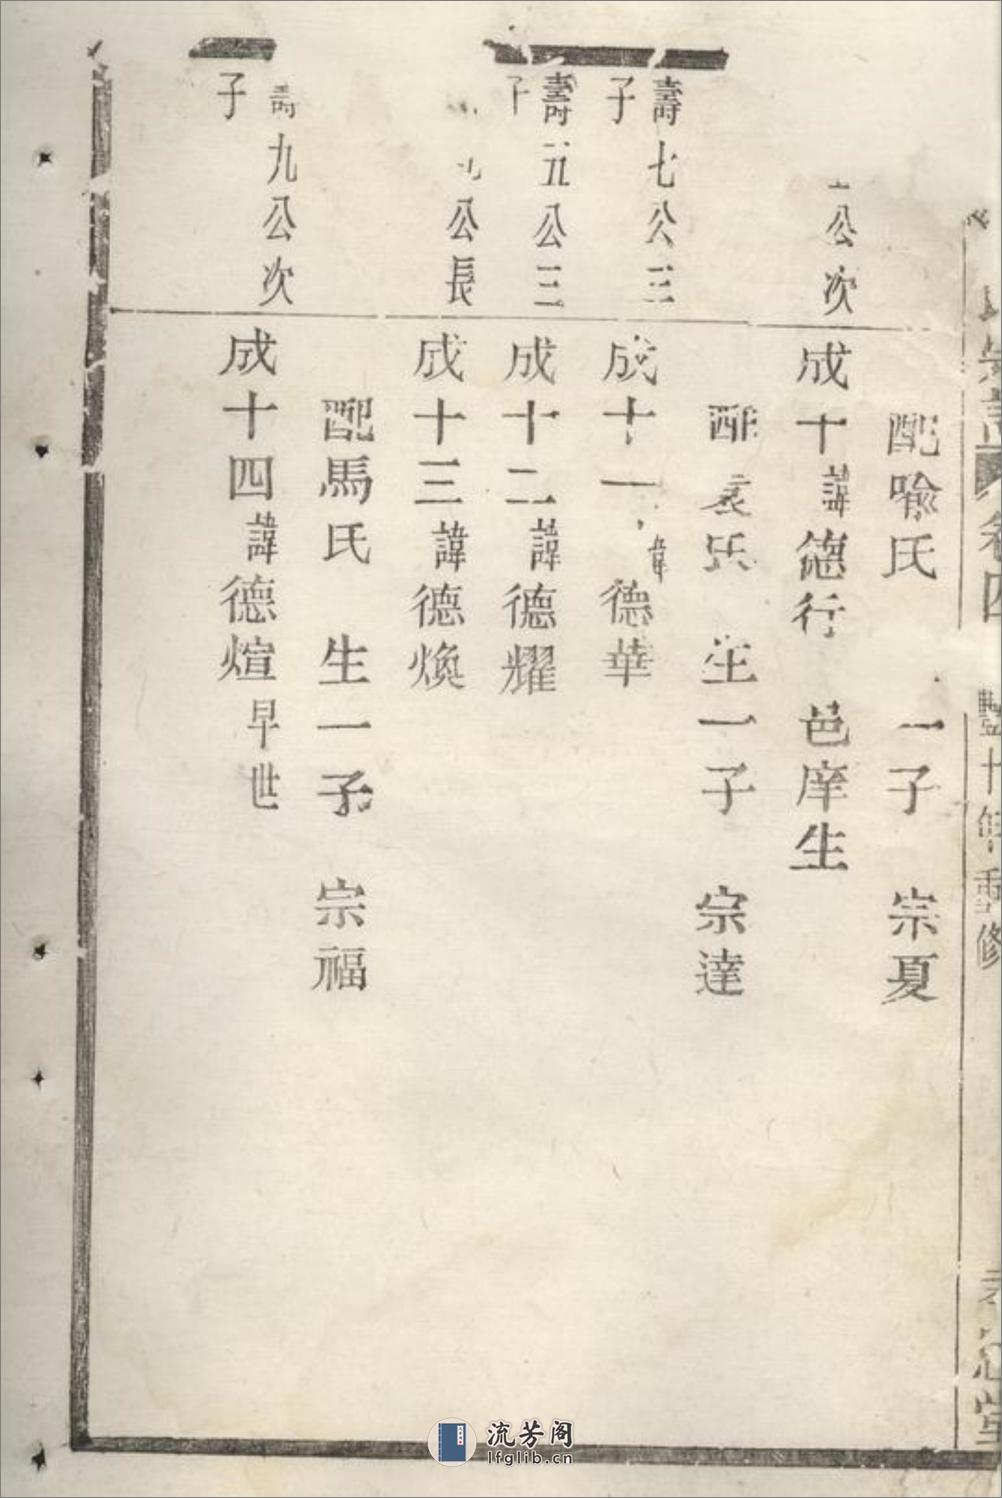 氏宗譜 卷四 豐十年重修
配喻氏 一子 宗夏
公次 成十諱德行 邑庠生
配袁氏 生一子 宗達
壽七公三子 成十一諱德華
壽五公三子 成十二諱德耀
九公長 成十三諱德煥
配馬氏 生一子 宗福
壽九公次子 成十四諱德煊早世
流芳阁
lfglib.cn